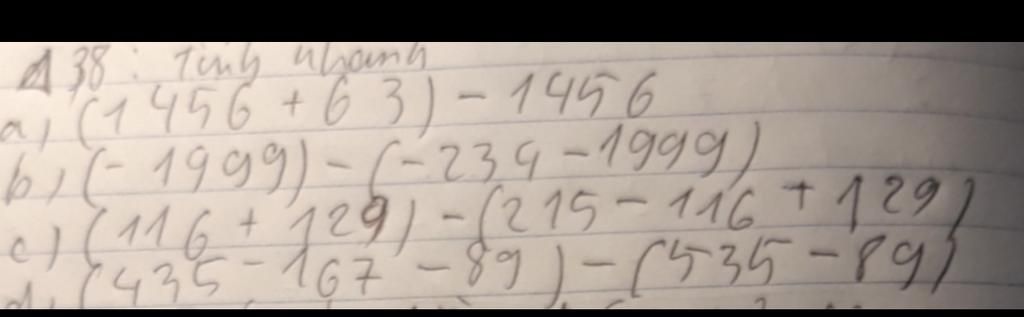 38: Tính nhanh
a) (1456 + 63) - 1456
b) (-1999) - (-234 - 1999)
c) (116 + 129) - (215 - 116 + 129)
d) (435 - 167 - 89) - (535 - 89)